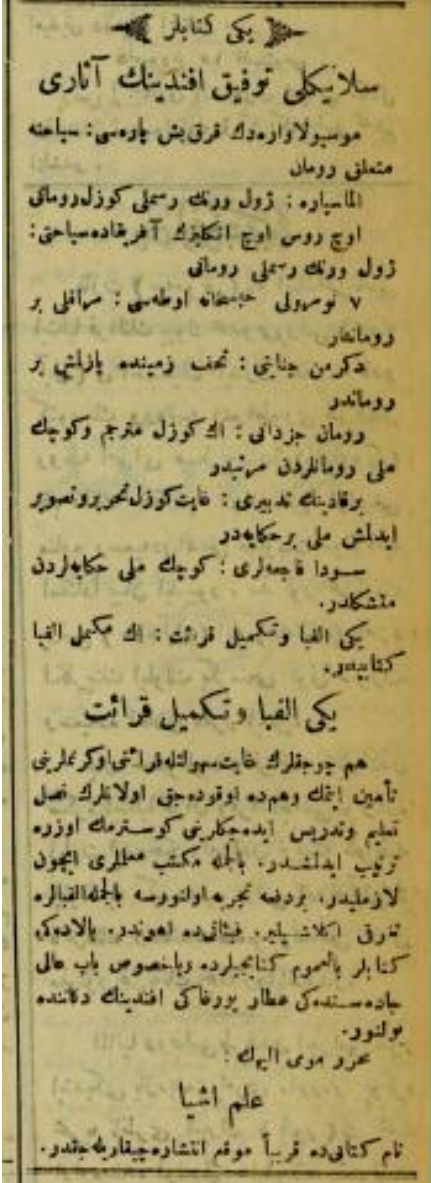 یكی كتابلر
سلانیكلی توفیق افندینك آثاری
موسیو لاواره‌دك قرق بش پاره‌سی : سیاحته
متعلق رومان
الماسپاره : ژول ورنك رسملی كوزل رومانی
اوچ روس اوچ انكلیزك آفریقاده سیاحتی :
ژول ورنك رسملی رومانی
۷ نومرولی اوطه‌سی : مراقلی بر
روماندر
دكرمن جنایتی : تحف زمینده یازلمش بر
روماندر
رومان جزدانی : اك كوزل مترجم وكوچك
ملی رومانلردن مرتبدر
برقادینك تدبیری : غایت كوزل تحریر و تصویر
ایدلمش ملی بر حكایه‌در
سودا فاجعه‌لری : كوچك ملی حكایه‌لردن
متشكلدر.
یكی الفبا و تكمیل قرائت : اك مكمل الفبا
كتابیدر.
یكی الفبا و تكمیل قرائت
هم چوجقلرك غایت سهولتله قرائتی اوكرنملرینی
تأمین ایتمك وهم‌ده اوقوده‌جق اولانلرك نصل
تعلیم وتدریس ایده‌جكلرینی كوسترمك اوزره
ترتیب ایدلمشدر. بالجمله مكتب معلملری ایچون
لازملیدر. بردفعه تجربه اولنورسه بالجمله الفبالره
تفوقی اكلاشیلیر. فیئاتی‌ده اهوندر. بالاده‌كی
كتابلر بالعموم كتابجیلرده وباخصوص باب عالی
جاده‌سنده‌كی عطار یورغاكی افندینك دكاننده
بولنور.
محرر مومی الیهك :
علم اشیا
نام كتابی‌ده قریباً موقع انتشاره چیقاریله‌جقدر.